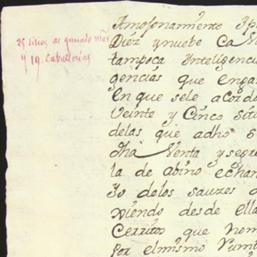 25 sitios de ganado maor
y 19. Caballerias
Amojonamiento
Diez y nuebe Ca
tampoca Inteligenci
gencias que enga
En que sele acord
Veinte y Cinco Siti
delas que adho S
dha Venta y segre
la de abino echan
Jo delos sauzes d
niendo desde ella
Cerritos que nom
Por el mismo Rumb